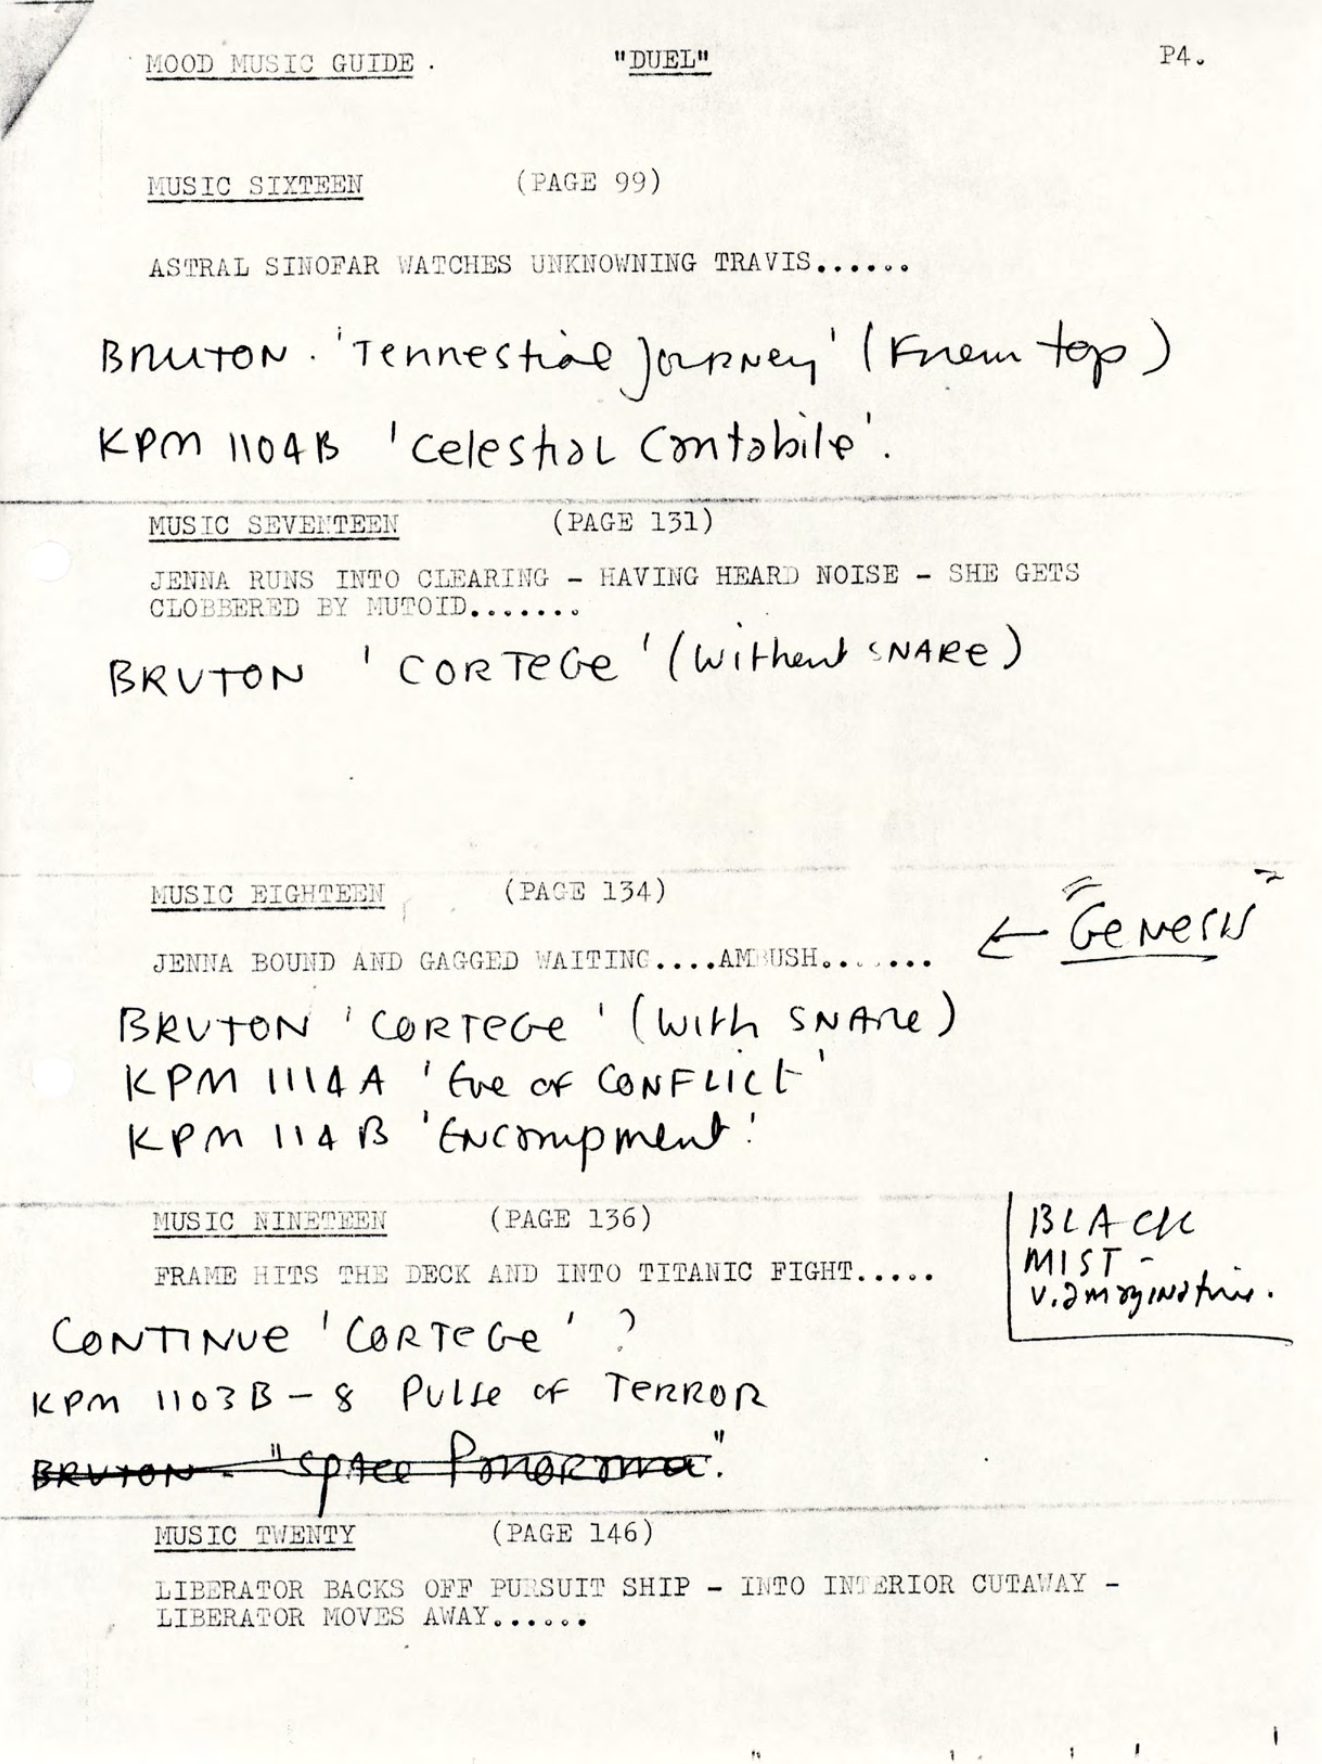 MOOD MUSIC GUIDE . "DUEL" P4.
MUSIC SIXTEEN (PAGE 99)
ASTRAL SINOFAR WATCHES UNKNOWNING TRAVIS......
BRUTON . 'Terrestrial Journey' (From top)
KPM 1104B 'Celestial Cantabile'.
MUSIC SEVENTEEN (PAGE 131)
JENNA RUNS INTO CLEARING - HAVING HEARD NOISE - SHE GETS
CLOBBERED BY MUTOID.......
BRUTON 'CORTEGE' (Without SNARE)
MUSIC EIGHTEEN (PAGE 134)
← "GENESIS"
JENNA BOUND AND GAGGED WAITING....AMBUSH.......
BRUTON 'CORTEGE' (With SNARE)
KPM 1114A 'Eve of CONFLICT'
KPM 114B 'Encampment'.
MUSIC NINETEEN (PAGE 136)
FRAME HITS THE DECK AND INTO TITANIC FIGHT.....
BLACK
MIST -
v. imaginative.
CONTINUE 'CORTEGE' ?
KPM 1103B - 8 Pulse of TERROR
BRUTON - "Space Panorama".
MUSIC TWENTY (PAGE 146)
LIBERATOR BACKS OFF PURSUIT SHIP - INTO INTERIOR CUTAWAY -
LIBERATOR MOVES AWAY......